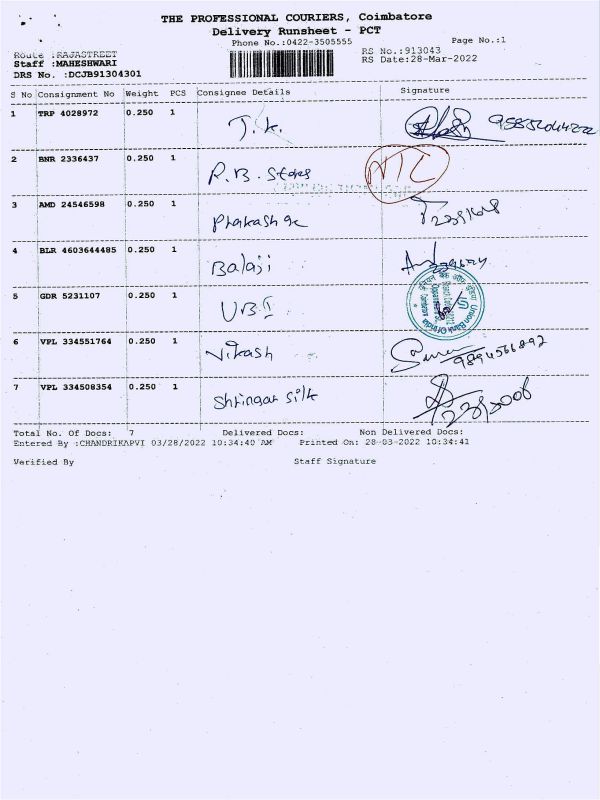 THE PROFESSIONAL COURIERS, Coimbatore
Delivery Runsheet - PCT
Phone No.:0422-3505555
Page No.:1
Route :RAJASTREET
RS No.:913043
Staff :MAHESHWARI
RS Date:28-Mar-2022
DRS No. :DCJB91304301
S No Consignment No Weight PCS Consignee Details Signature
1 TRP 4028972 0.250 1 J.K.
2 BNR 2336437 0.250 1 R.B. Stores NTC
3 AMD 24546598 0.250 1 Phakash
4 BLR 4603644485 0.250 1 Balaji
5 GDR 5231107 0.250 1 UBI Union Bank Of India
6 VPL 334551764 0.250 1 Vikash 9894566892
7 VPL 334508354 0.250 1 Shringar Silk
Total No. Of Docs: 7 Delivered Docs: Non Delivered Docs:
Entered By :CHANDRIKAPVI 03/28/2022 10:34:40 AM Printed On: 28-03-2022 10:34:41
Verified By Staff Signature